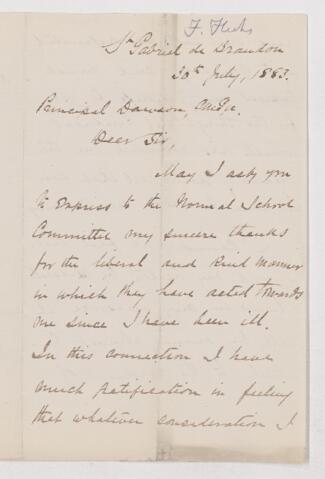 F. Hicks
St Gabriel de Brandon
30th July, 1883.
Principal Dawson, &c.
Dear Sir,
May I ask you
to express to the Normal School
Committee my sincere thanks
for the liberal and kind manner
in which they have acted towards
me since I have been ill.
In this connection I have
much gratification in feeling
that whatever consideration I